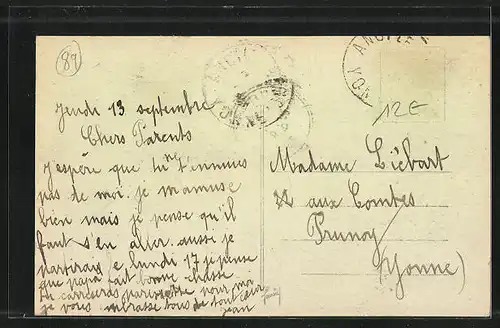 89
ANGY
ANGY
12€
Jeudi 13 septembre
Chers Parents
J'espère que tu ne t'ennuies
pas de moi. je m'amuse
bien mais je pense qu'il
faut s'en aller. aussi je
partirais le lundi 17 je pense
que papa fait bonne chasse
Tu caresseras pour moi
je vous embrasse tous de tout cœur
Jean
Madame Liébart
aux Combes
Prunoy
(Yonne)